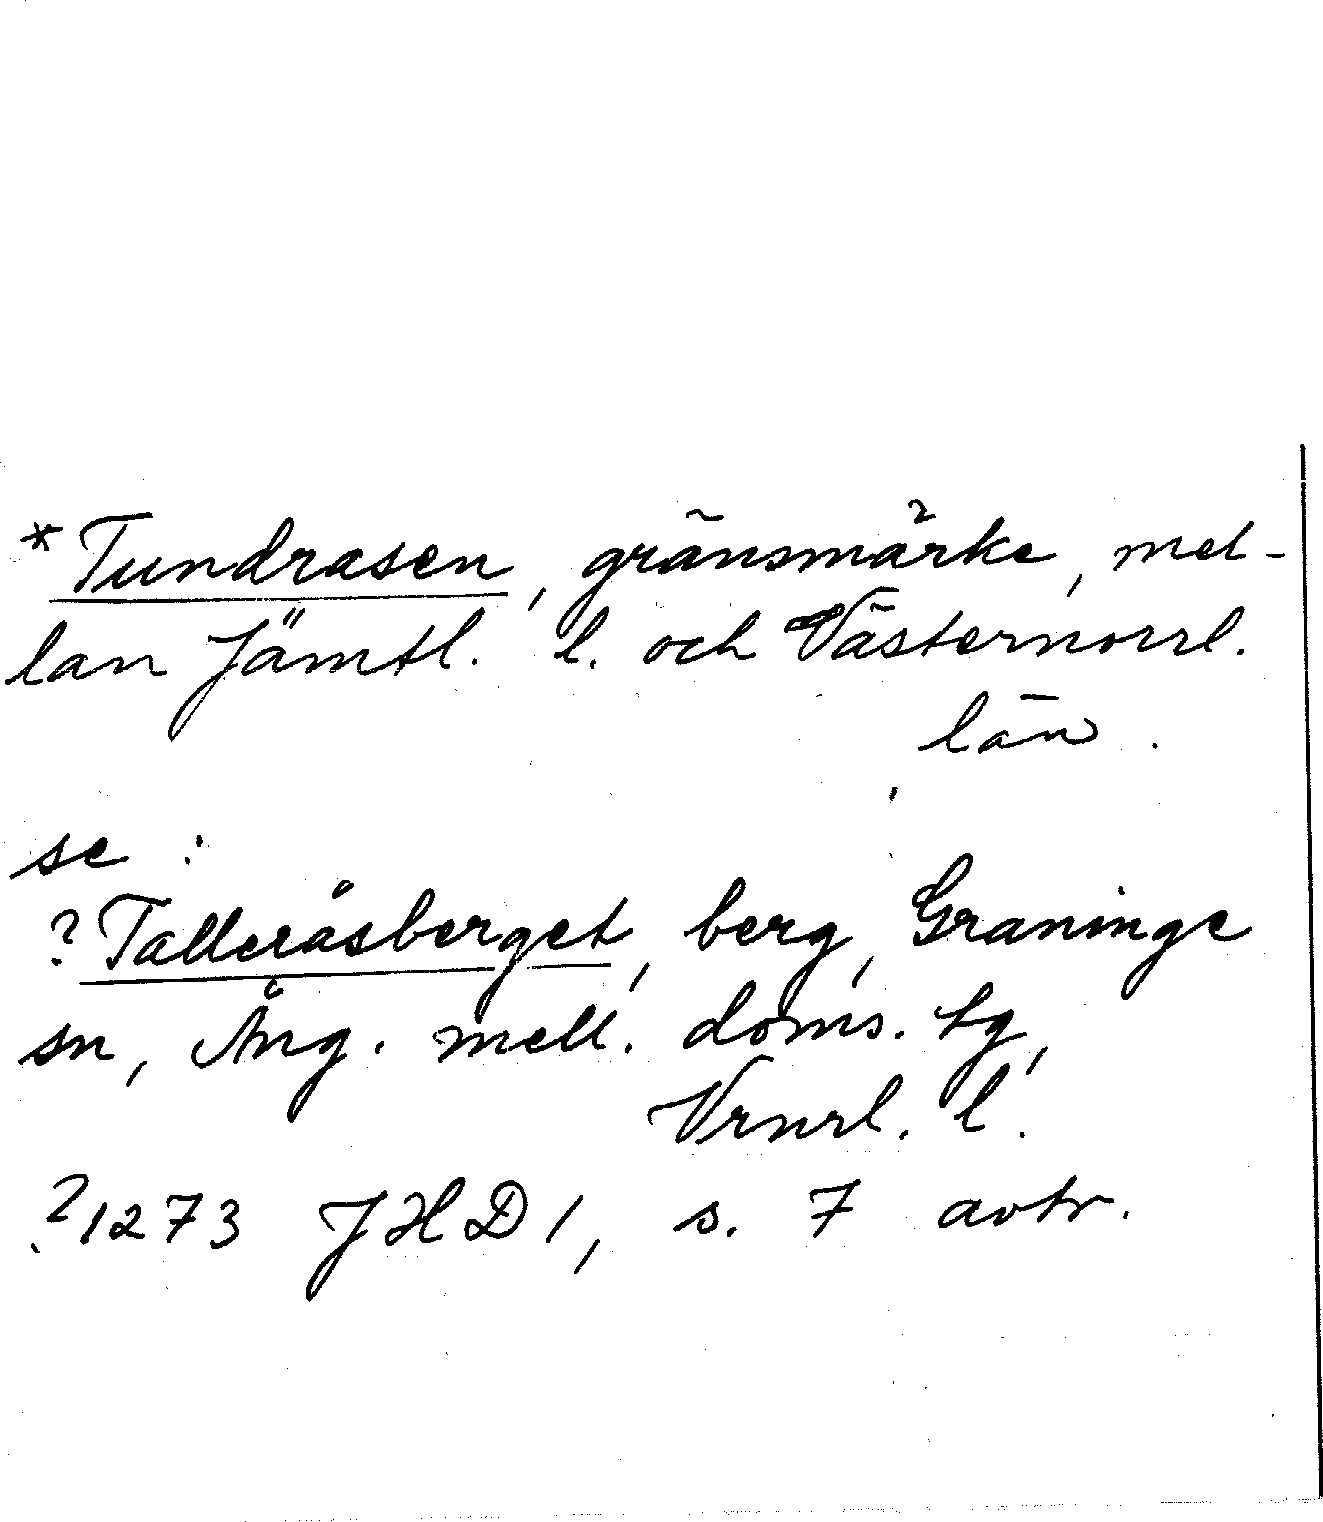 *Tundrasen, gränsmärke, mel-
lan Jämtl. l. och Västernorrl.
län.
se :
?Talleråsberget, berg, Graninge
sn, Ång. mell. doms. tg,
Vrnrl. l.
?1273 JHD 1, s. 7 avtr.